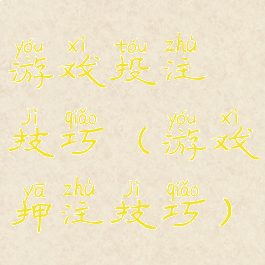 yóu xì tóu zhù
游戏投注
jì qiǎo yóu xì
技巧（游戏
yā zhù jì qiǎo
押注技巧）